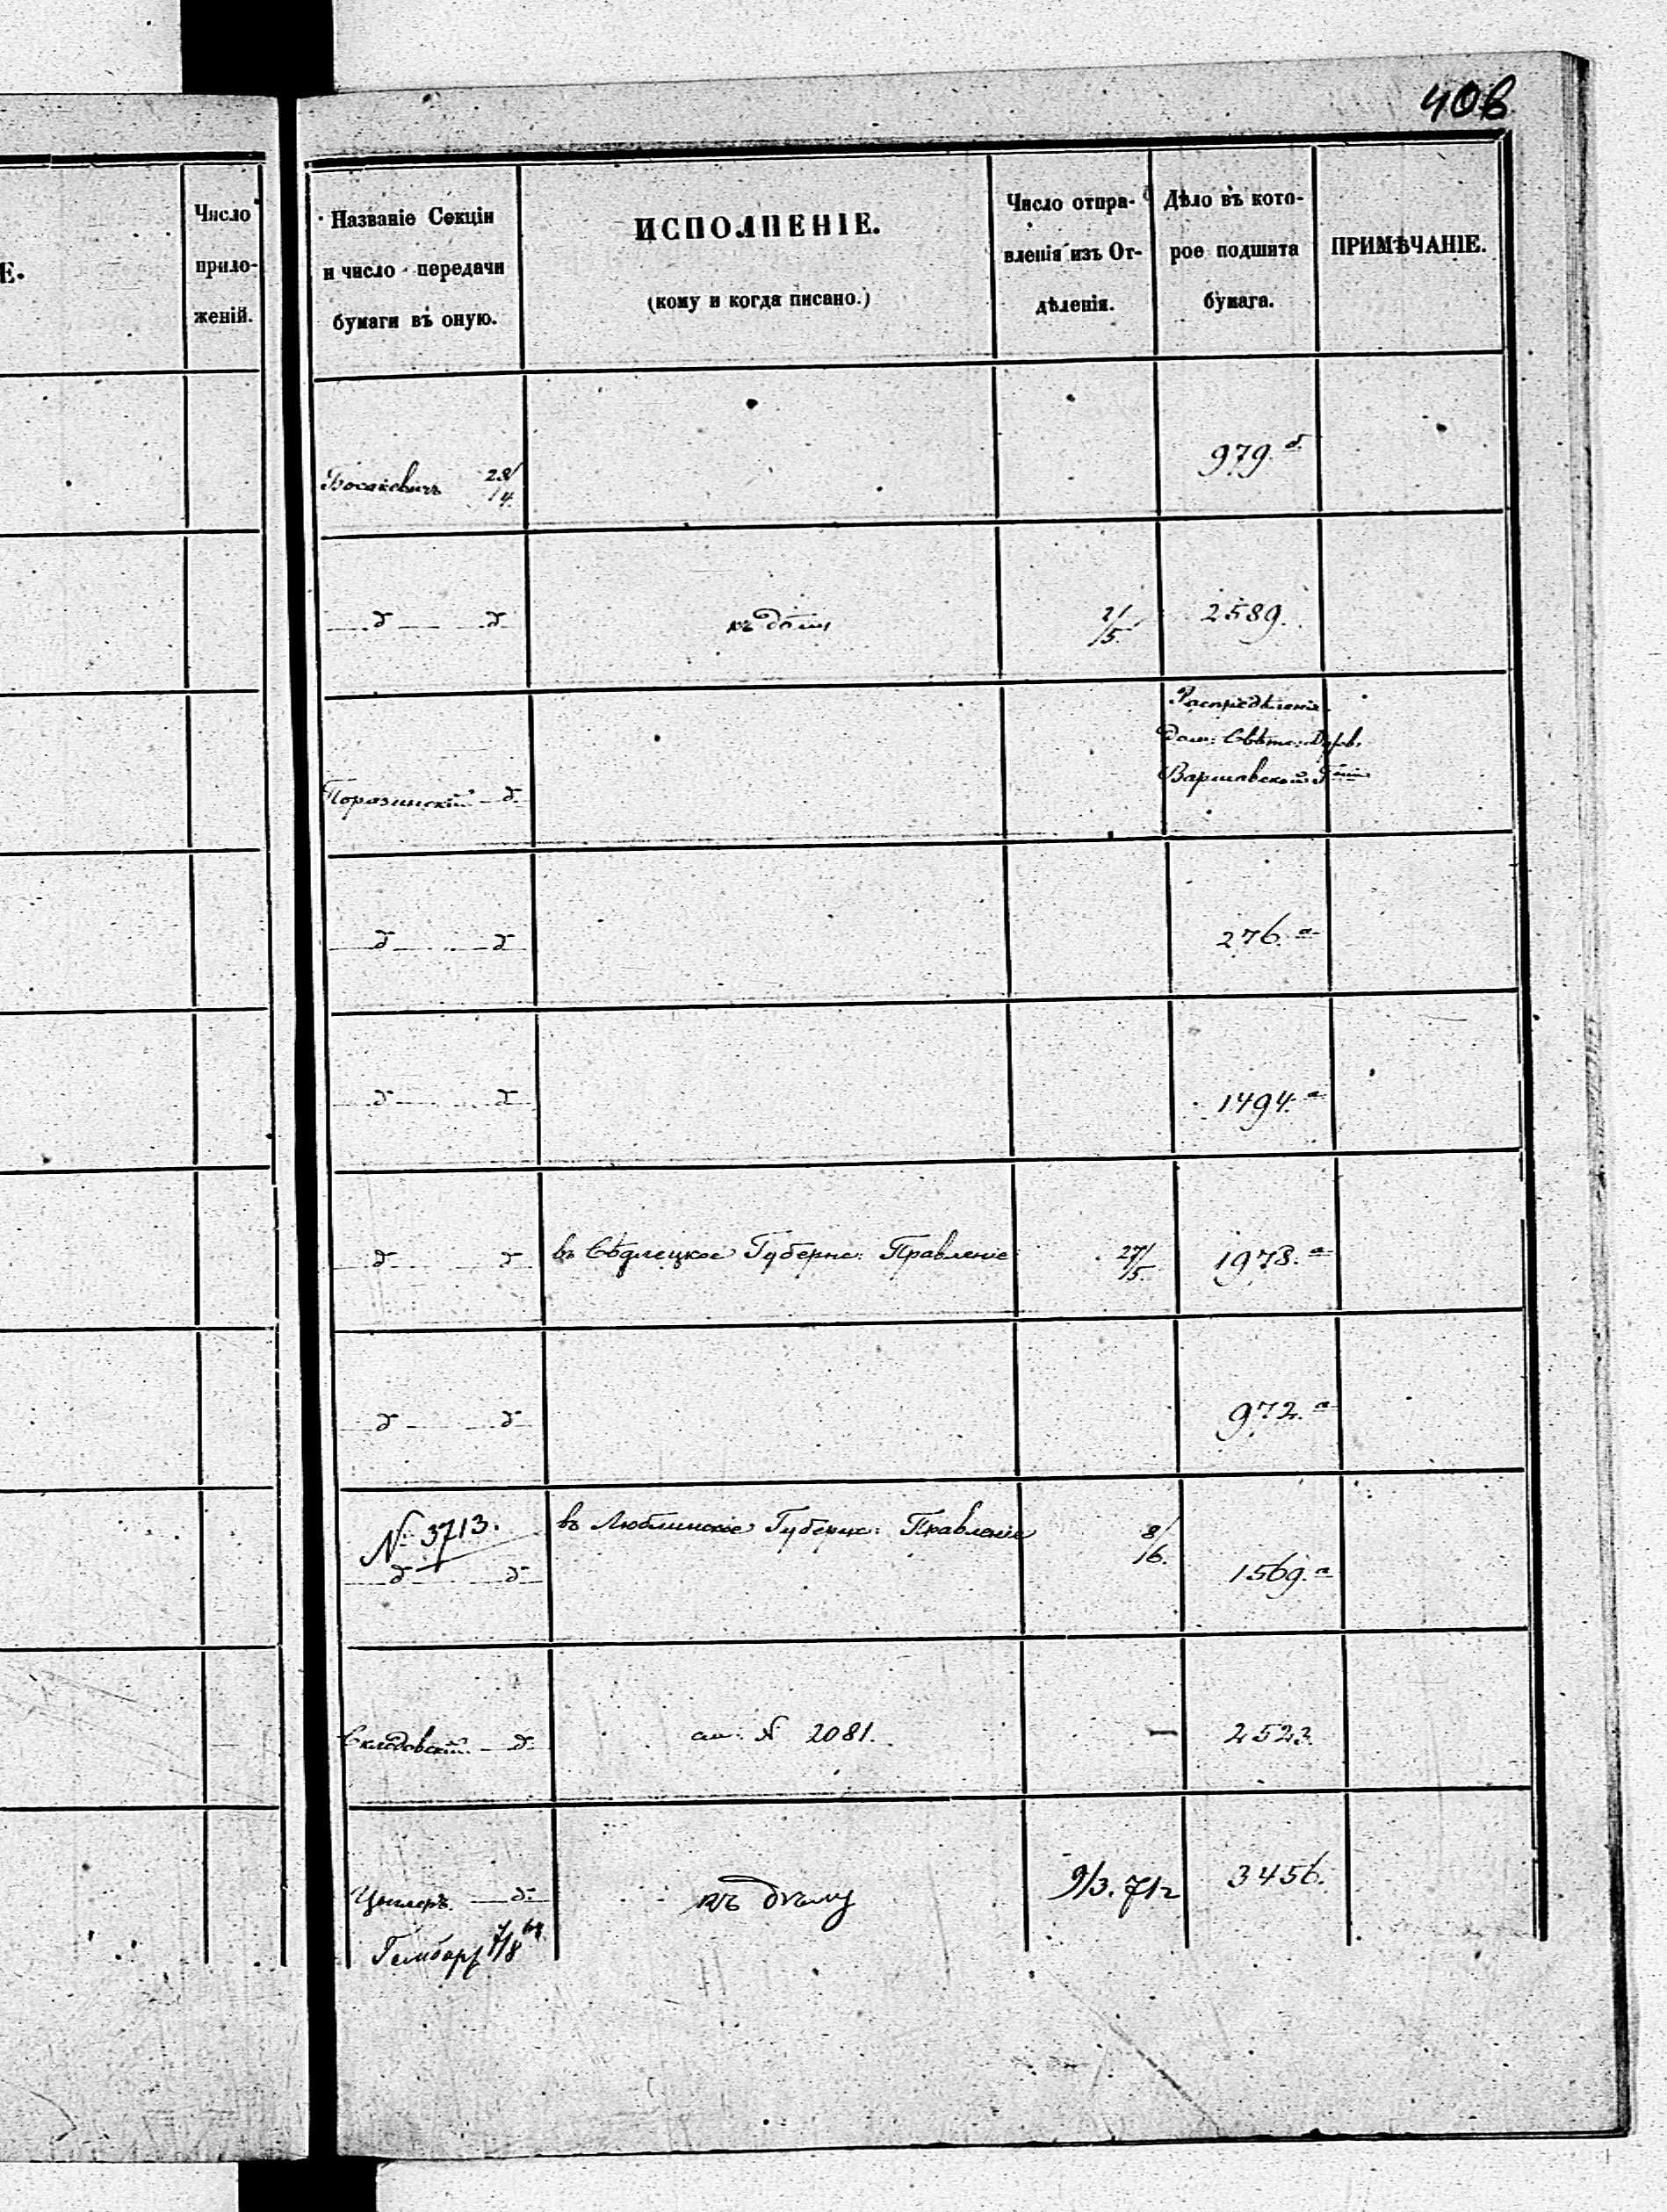 406
Е.
Число
прило-
женій.
Названіе Секціи
и число передачи
бумаги въ оную.
ИСПОЛНЕНІЕ.
(кому и когда писано.)
Число отпра-
вленія изъ От-
дѣленія.
Дѣло въ кото-
рое подшита
бумага.
ПРИМѢЧАНІЕ.
28/4.
979 б
д д
къ дѣлу
2/5.
2589.
Распредѣленіе
Варшавской
д
д д
276. а
д д
1494. а
д д
въ Сѣдлецкое Губернс: Правленіе
27/5.
1978. а
д д
972. а
№ 3713.
д д
въ Люблинское Губернс: Правленіе
8/6.
1569. а
д
см: № 2081.
—
2523.
д
къ дѣлу
9/3. 71 г
3456.